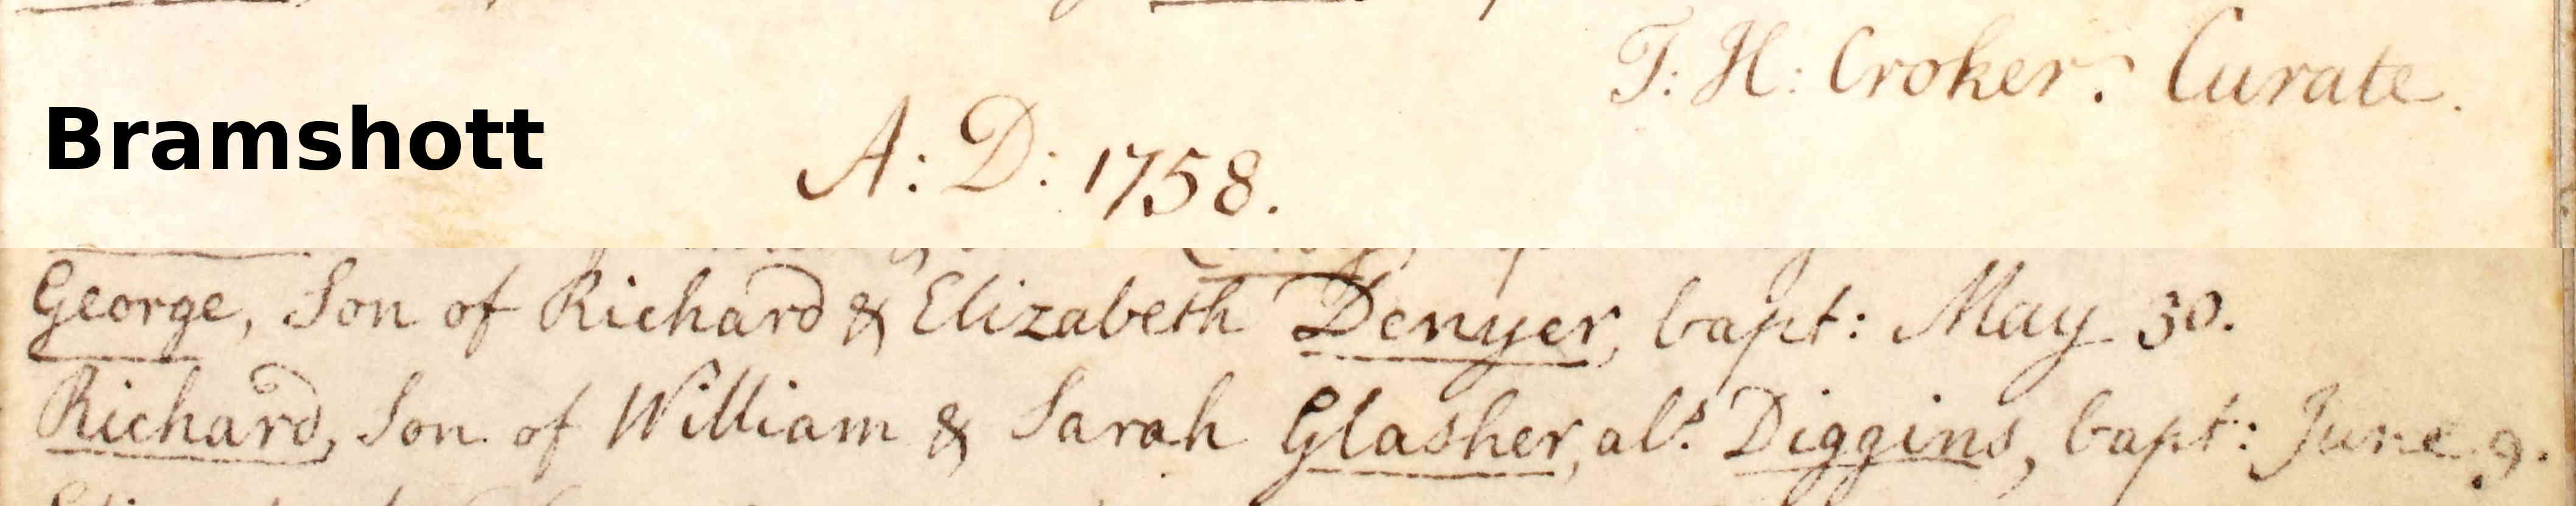 T: H: Croker: Curate.
Bramshott
A: D: 1758.
George, Son of Richard & Elizabeth Denyer, bapt: May 30.
Richard, Son of William & Sarah Glasher, als: Diggins, bapt: June 9.